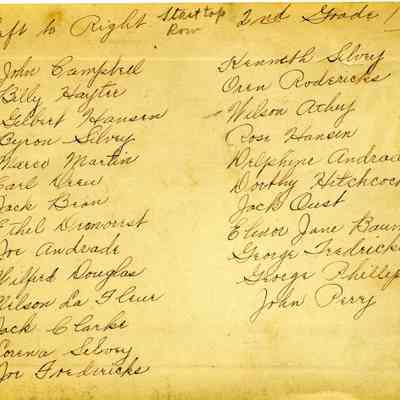 Left to Right Start top Row 2nd Grade
John Campbell
Billy Hayter
Gilbert Hansen
Byron Silvey
Marco Martin
Earl Drew
Jack Bean
Ethel Demorest
Joe Andrade
Wilfred Douglas
Nelson La Fleur
Jack Clarke
Lorena Silvey
Joe Fredericks
Kenneth Silvey
Oren Rodericks
Wilson Athey
Rose Hansen
Delphine Andrade
Dorthy Hitchcock
Jack Oust
Elinor Jane Baum
George Fredricks
George Phillip
John Perry